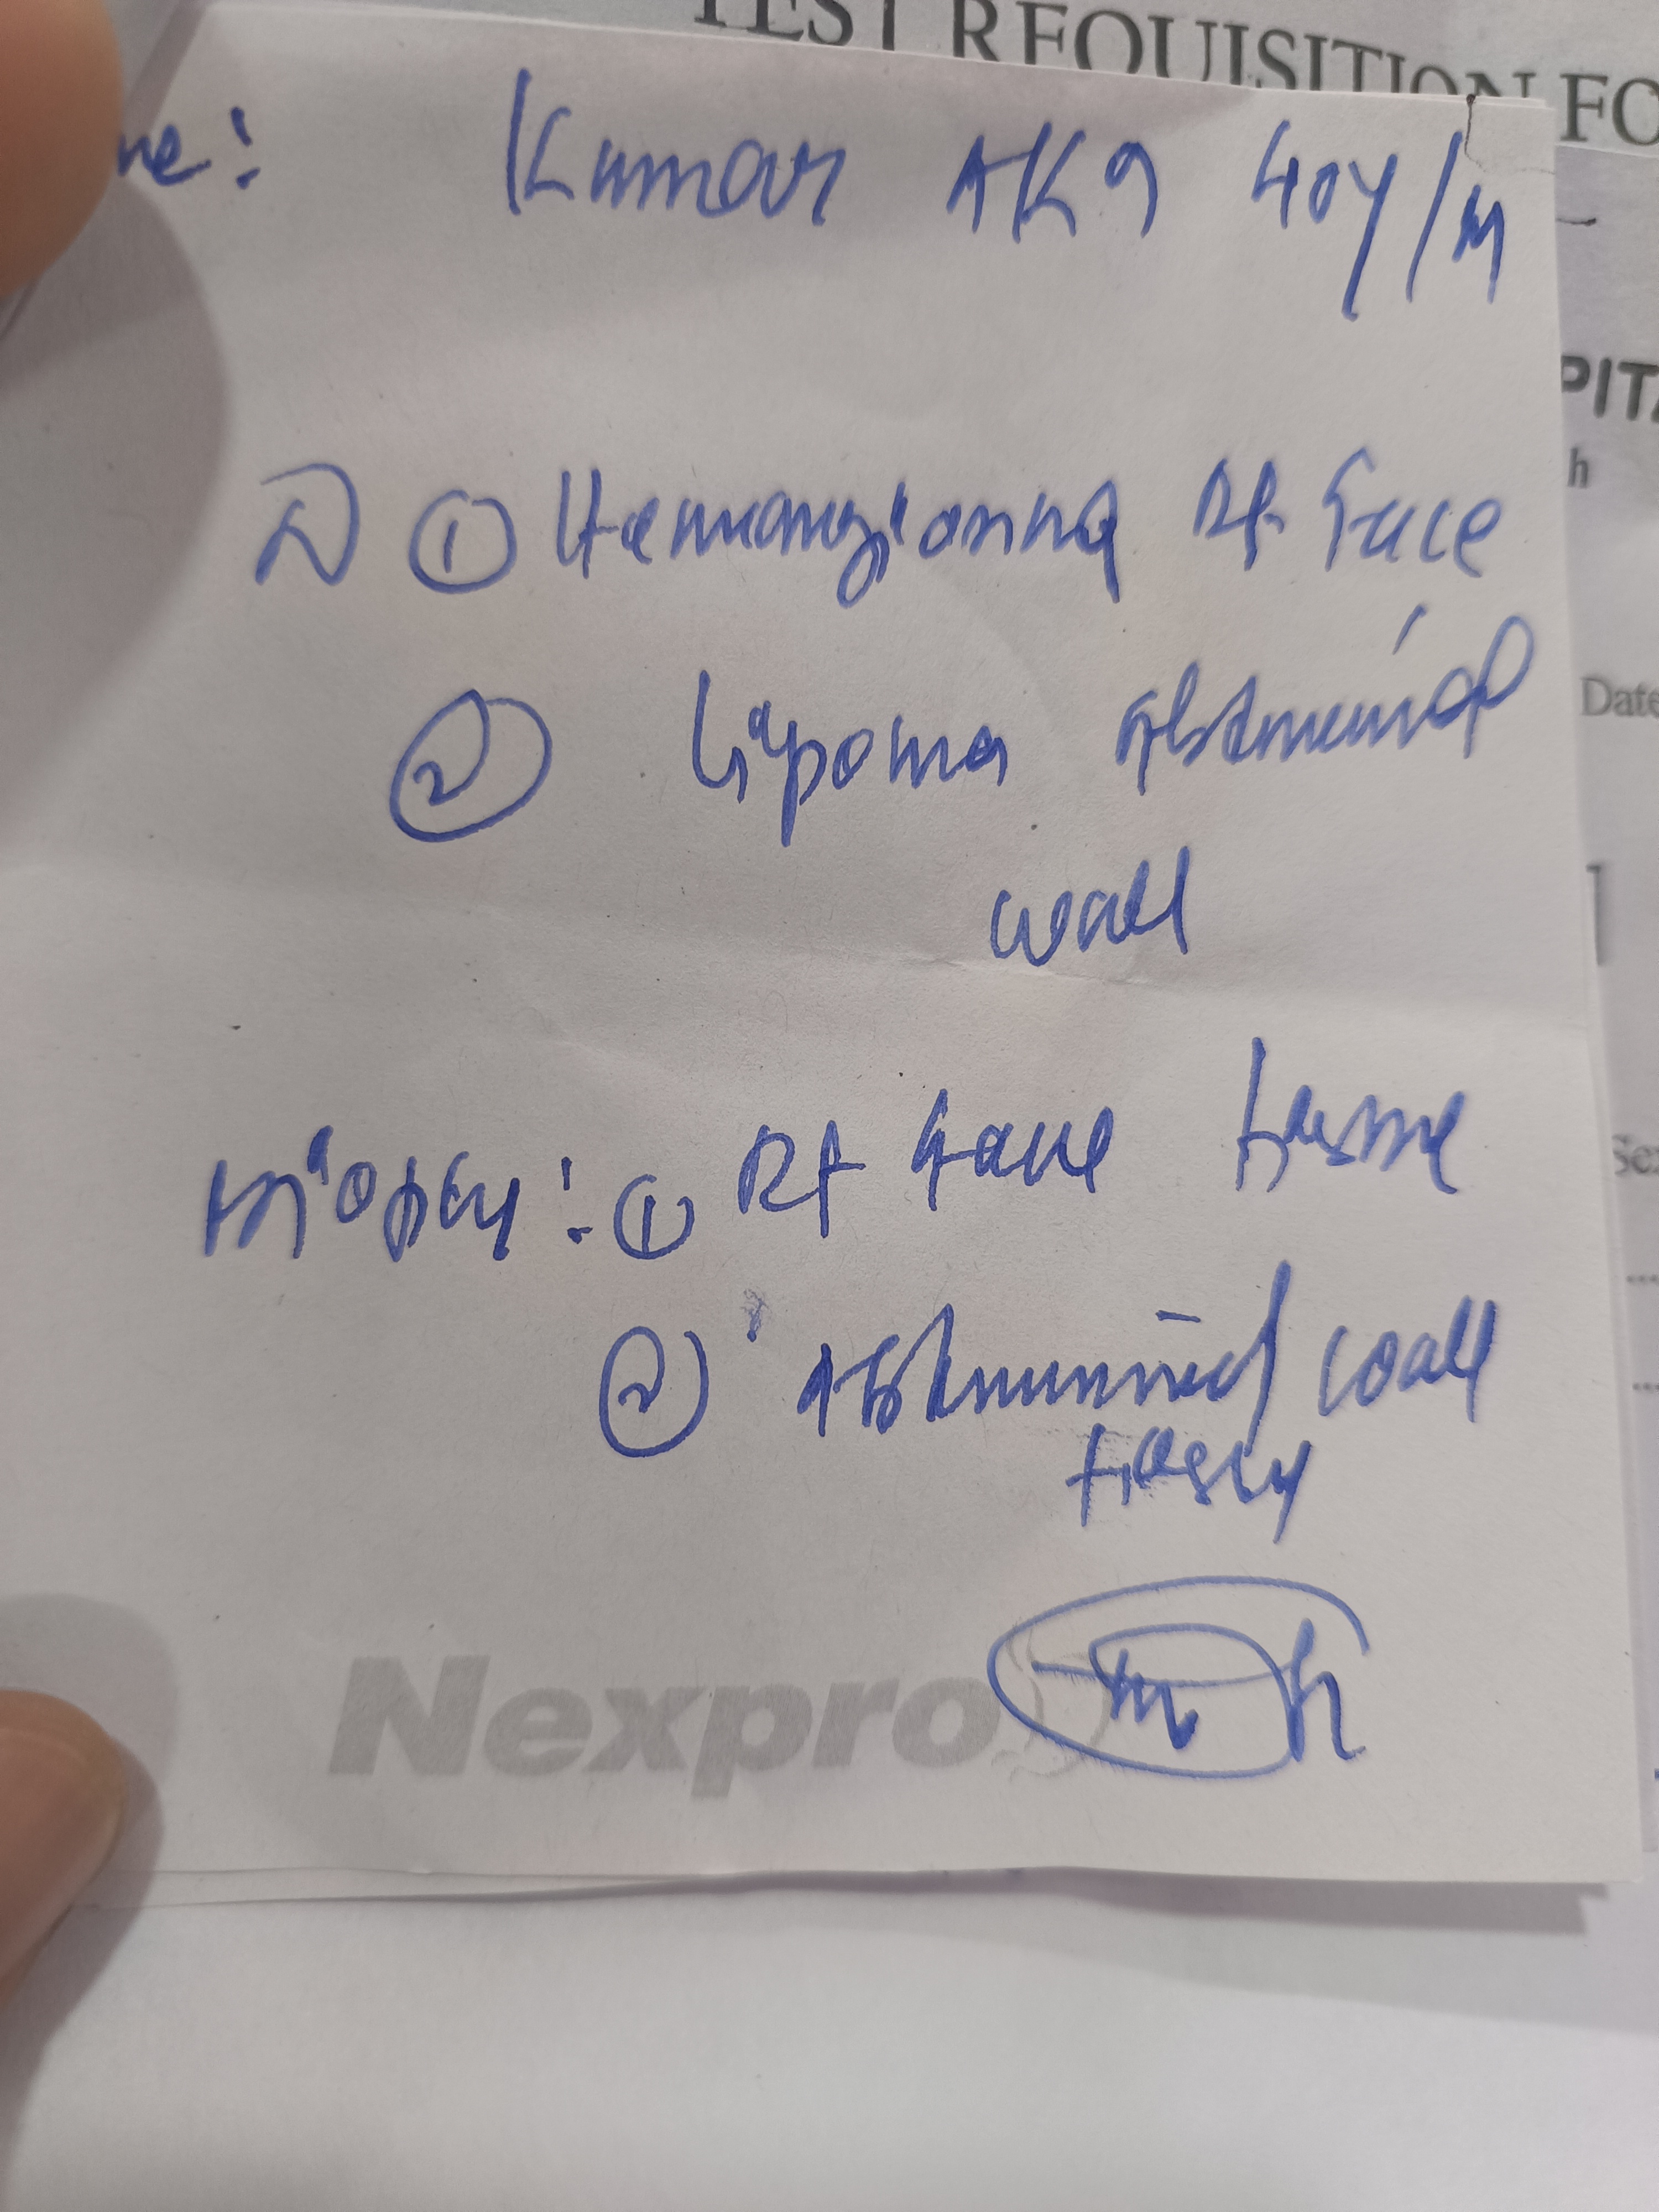 TEST REQUISITION FO
me: Kumar AK9 40y/M
PITA
h
① Hemangioma Rt Face
Date
② Lipoma Abdominal
wall
Biopsy :- ① Rt Face tissue
Sex
② Abdominal wall
tissue
Nexpro